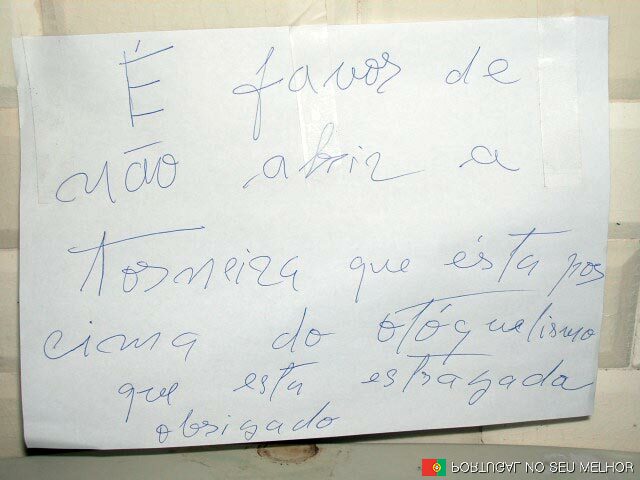 É favor de
não abrir a
Torneira que ésta por
cima do otóquelismo
que esta estragada
obrigado
PORTUGAL NO SEU MELHOR